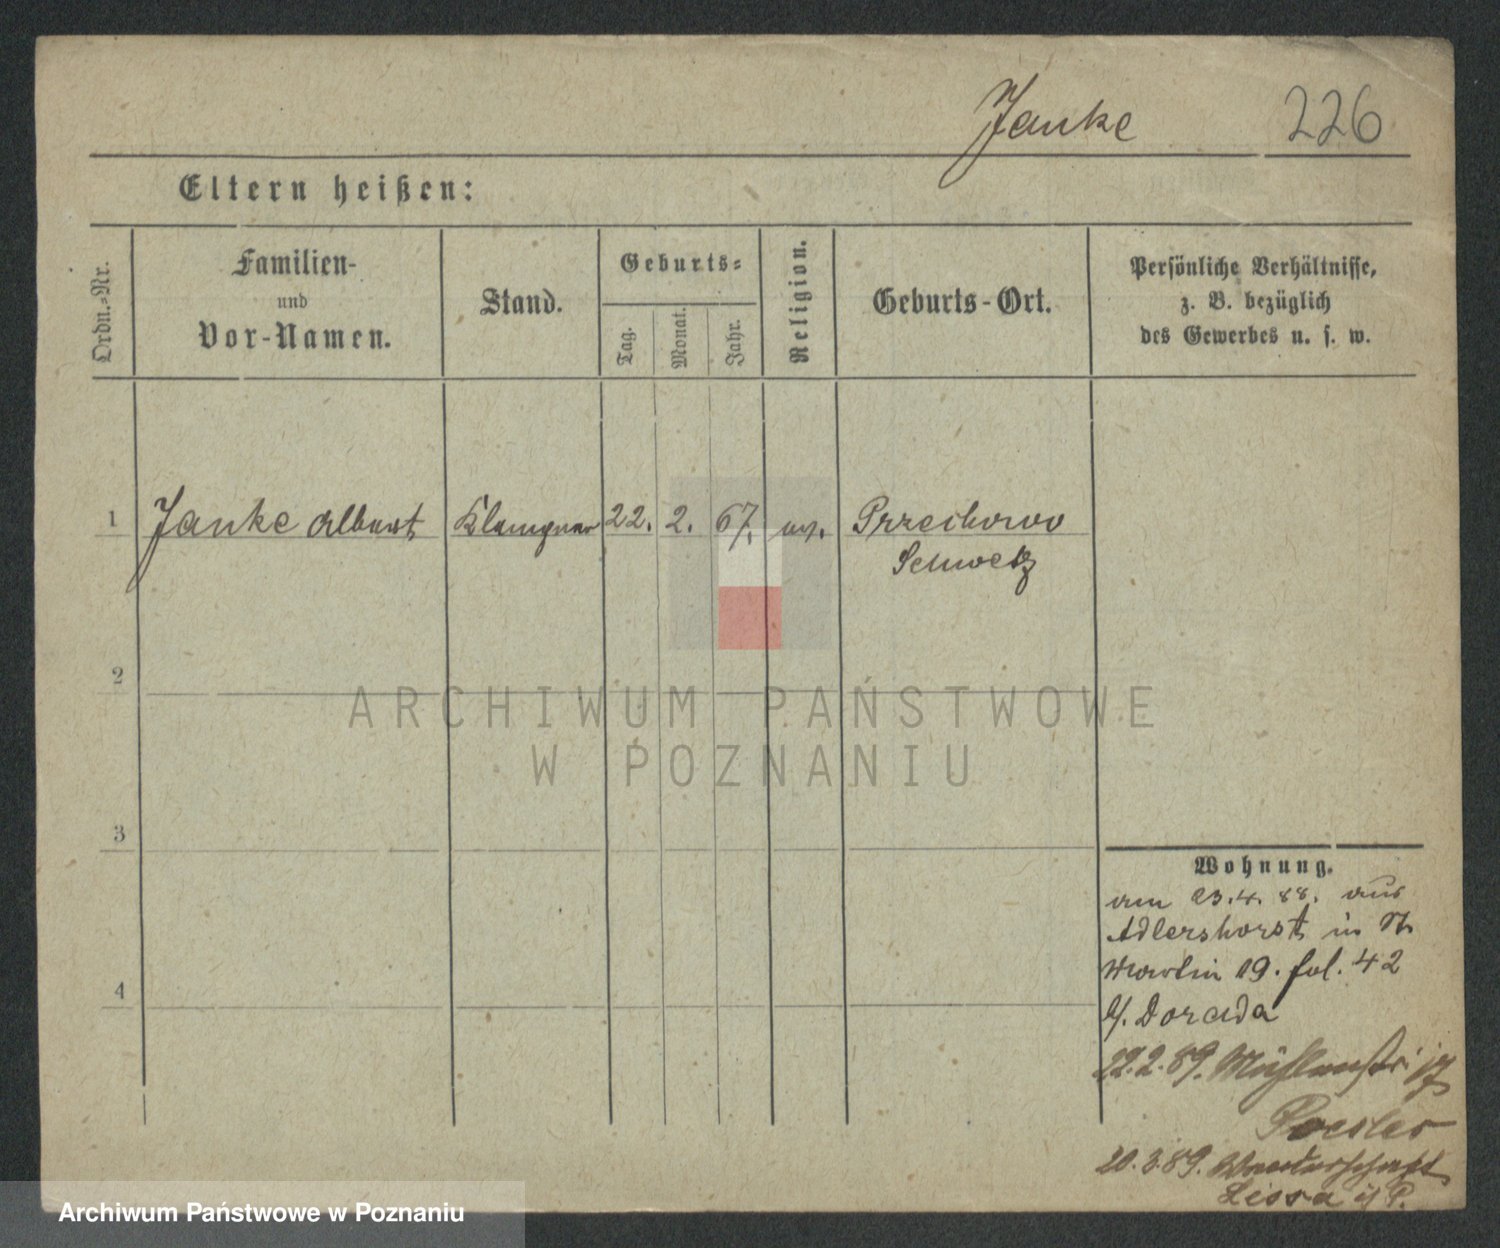 Janke 226
Eltern heißen:
Ordn.-Nr.
Familien-
und
Vor-Namen.
Stand.
Geburts-
Tag.
Monat.
Jahr.
Religion.
Geburts-Ort.
Persönliche Verhältnisse,
z. B. bezüglich
des Gewerbes u. s. w.
1 Janke Albert Klempner 22. 2. 67. ev. Przechowo
Schwetz
2
3
4
Wohnung.
am 23.4.88. aus
Adlershorst in St
Martin 19. fol. 42
b/. Dorada
22.2.89. Mühlenstr. 17
Roesler
20.3.89. Wanderschaft
Lissa i/ P.
ARCHIWUM PAŃSTWOWE
W POZNANIU
Archiwum Państwowe w Poznaniu